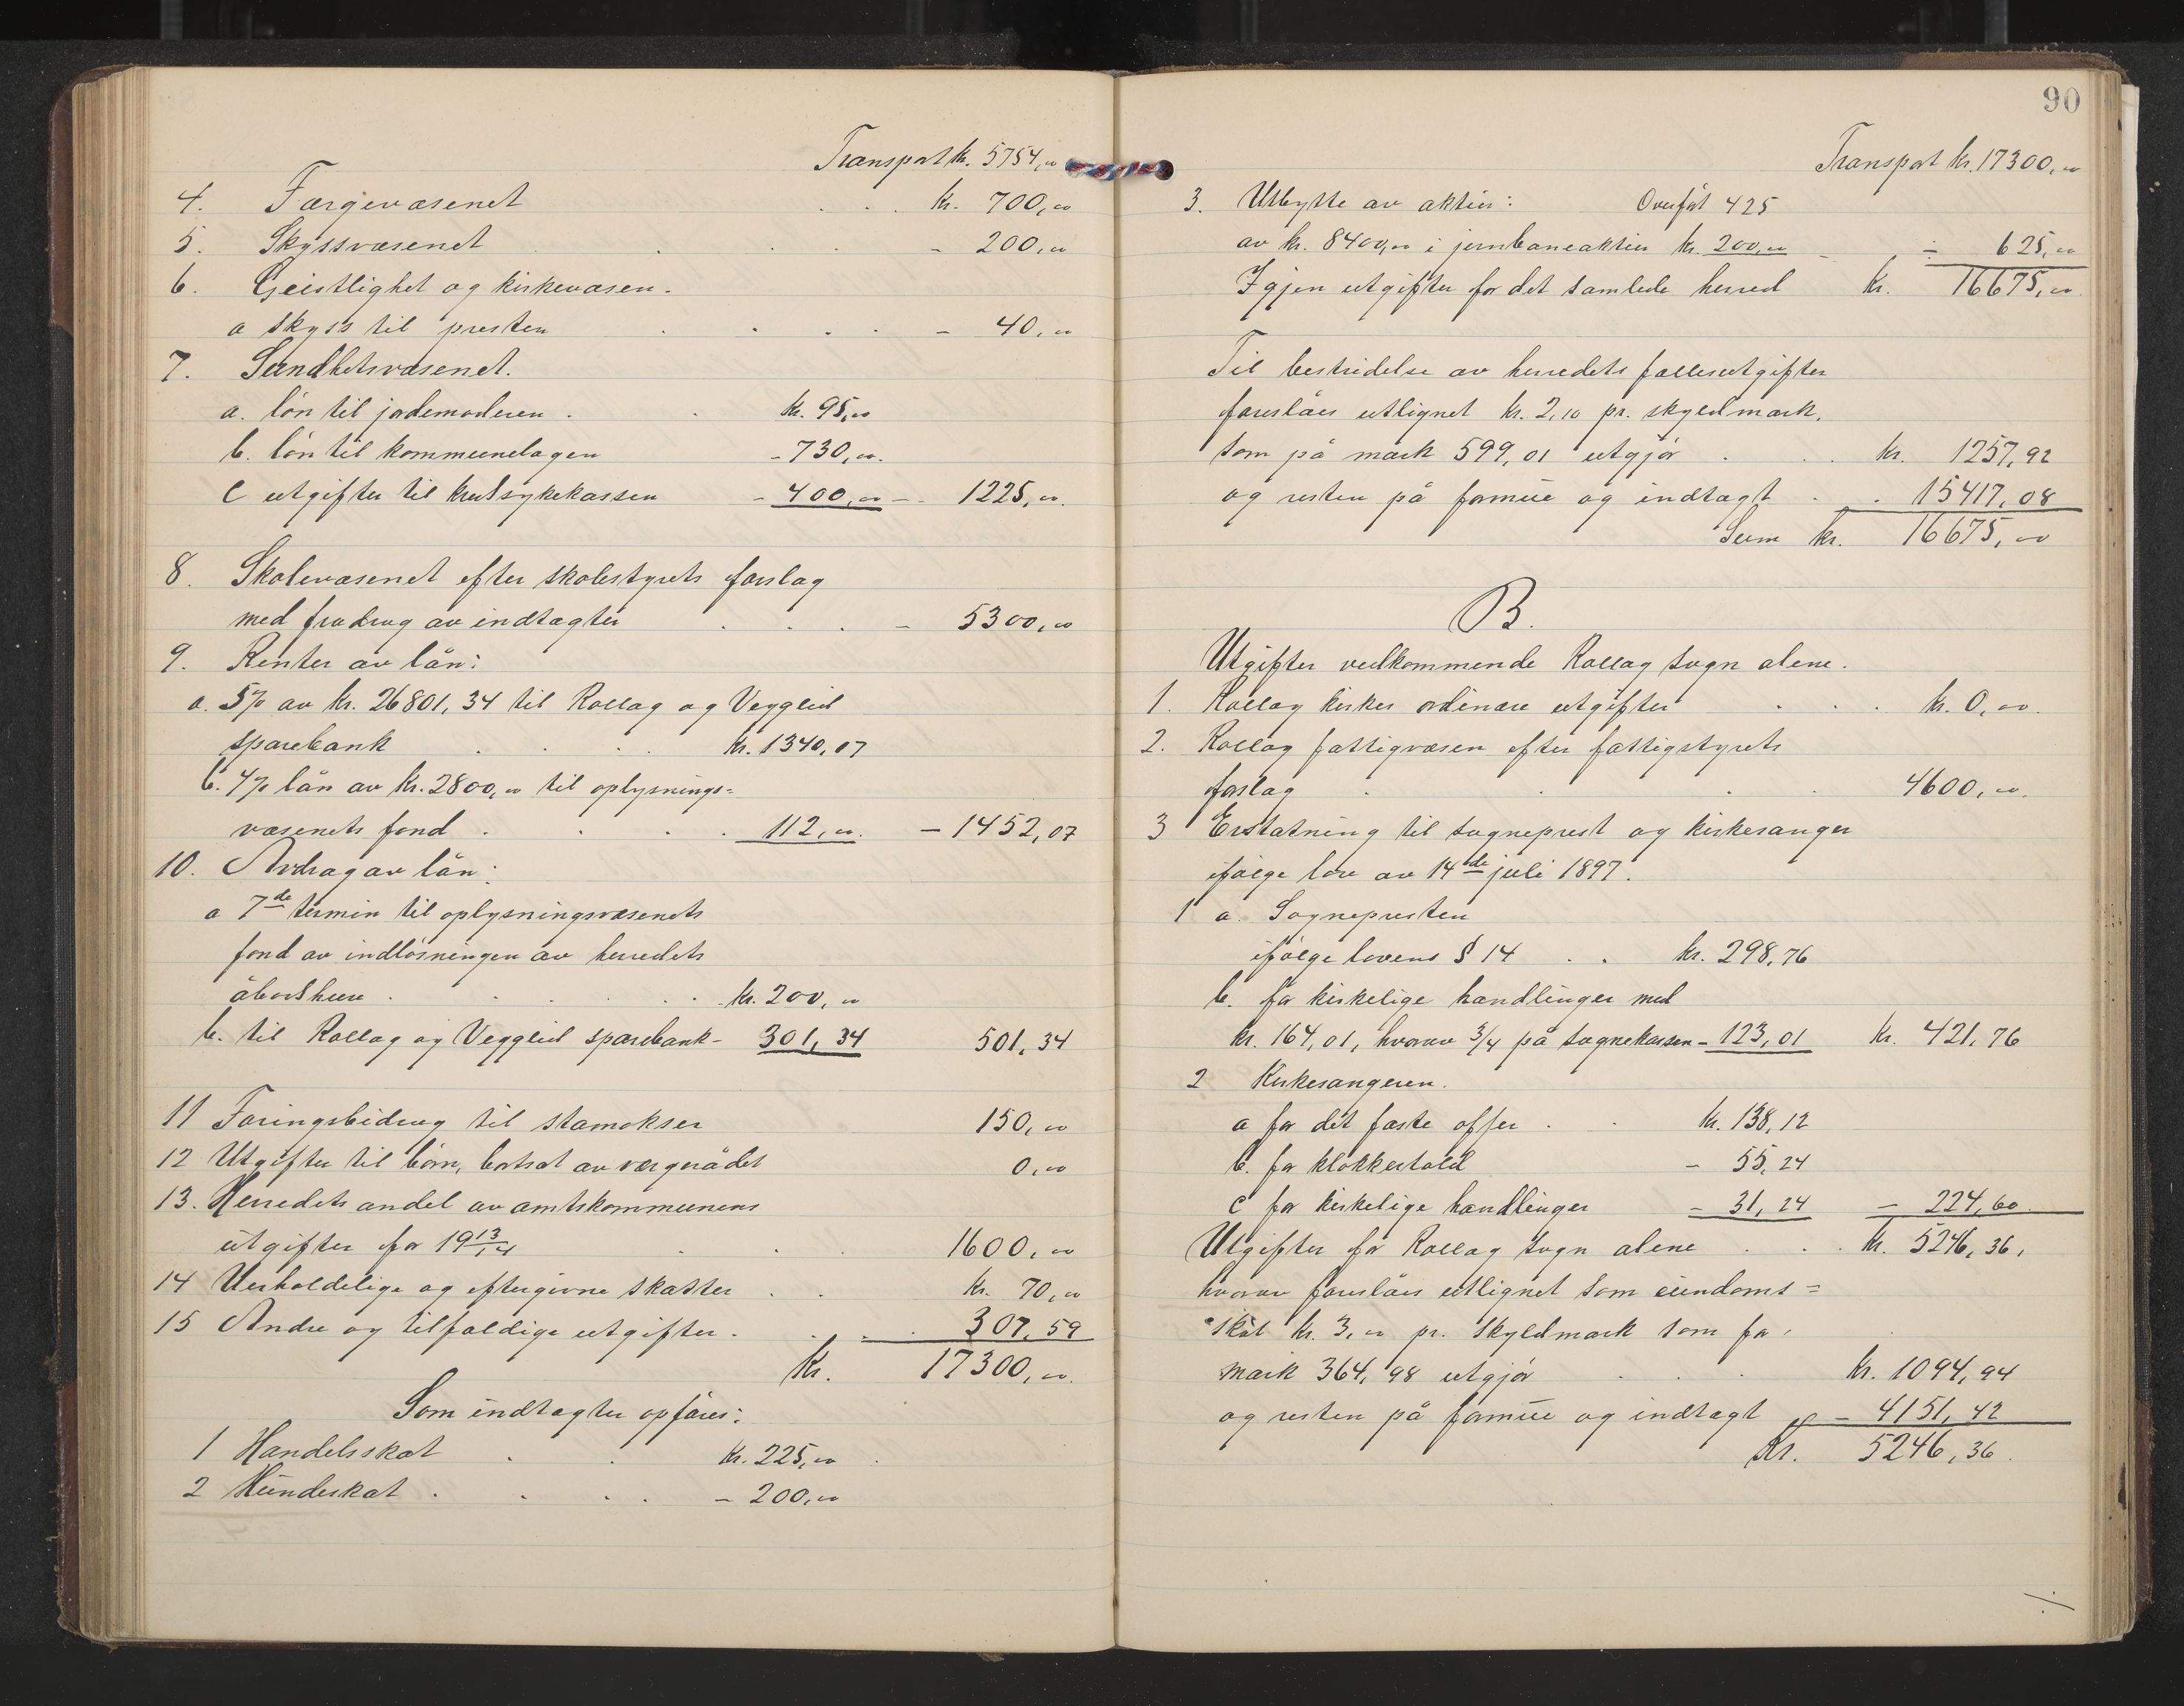 Transport kr. 5754,00
4. Færgevæsenet . . . kr. 700,00
5. Skyssvæsenet . . . . - 200,00
6. Geistlighet og kirkevæsen.
a skyss til presten . . . . - 40,00
7. Sundhetsvæsenet.
a. løn til jordemoderen . . kr. 95,00
b. løn til kommunelægen - 730,00.
c utgifter til kredssykekassen - 400,00 - 1225,00.
8. Skolevæsenet efter skolestyrets forslag
med fradrag av indtægter . . . - 5300,00
9. Renter av lån:
a. 5% av kr. 26801,34 til Rollag og Vegglid
sparebank . . . . kr. 1340,07
b. 4% lån av kr. 2800,00 til oplysnings=
væsenets fond . . . . 112,00. - 1452,07
10. Avdrag av lån:
a 7de termin til oplysningsvæsenets
fond av indløsningen av herredets
åbodshus . . . . . kr. 200,00
b. til Rollag og Vegglid sparebank - 301,34 501,34
11 Foringsbidrag til stamokser 150,00
12 Utgifter til børn, bortsat av vergerådet 0,00
13. Herredets andel av amtskommunens
utgifter for 1913/14 . . . 1600,00
14 Uerholdelige og eftergivne skatter . . kr. 70,00
15 Andre og tilfældige utgifter . . . . 307,59
Kr. 17300,00.
Som indtægter opføres:
1 Handelsskat . . kr. 225,00.
2 Hundeskat . . . . - 200,00
90
Transport kr. 17300,00
3. Utbytte av aktier: Overført 425
av kr. 8400,00 i jernbaneaktier kr. 200,00 - ÷ 625,00
Igjen utgifter for det samlede herred Kr. 16675,00.
Til bestridelse av herredets fællesutgifter
foreslåes utlignet kr. 2,10 pr. skyldmark,
som på mark 599,01 utgjør . . . kr. 1257,92
og resten på formue og indtægt . . 15417,08
Sum kr. 16675,00
B.
Utgifter vedkommende Rollag sogn alene.
1. Rollag kirkes ordinære utgifter . . . kr. 0,00.
2. Rollag fattigvæsen efter fattigstyrets
forslag . . . . 4600,00.
3 Erstatning til sogneprest og kirkesanger
ifølge lov av 14de juli 1897.
1 a. Sognepresten
ifølge lovens § 14 . . kr. 298,76
b. for kirkelige handlinger med
kr. 164,01, hvorav 3/4 på sognekassen - 123,01 Kr. 421,76
2 Kirkesangeren.
a for det faste offer . . kr. 138,12
b. for klokkertold - 55,24
c for kirkelige handlinger - 31,24 - 224,60.
Utgifter for Rollag sogn alene . . . kr. 5246,36,
hvorav foreslåes utlignet som eiendoms=
skat kr. 3,00 pr. skyldmark som for
mark 364,98 utgjør . . . kr. 1094,94
og resten på formue og indtægt - 4151,42
Kr. 5246,36.